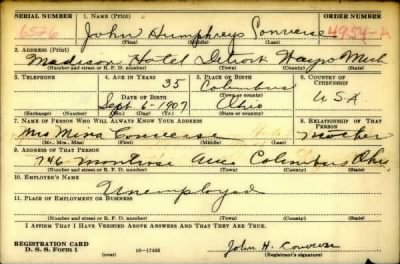 SERIAL NUMBER 1. NAME (Print) ORDER NUMBER
6526 John Humphreys Converse 4954-A
(First) (Middle) (Last)
2. ADDRESS (Print)
Madison Hotel Detroit Wayne Mich
(Number and street or R. F. D. number) (Town) (County) (State)
3. TELEPHONE 4. AGE IN YEARS 5. PLACE OF BIRTH 6. COUNTRY OF CITIZENSHIP
35 Columbus
DATE OF BIRTH (Town or county)
Sept 6-1907 Ohio U.S.A.
(Exchange) (Number) (Mo.) (Day) (Yr.) (State or country)
7. NAME OF PERSON WHO WILL ALWAYS KNOW YOUR ADDRESS 8. RELATIONSHIP OF THAT PERSON
Mrs Mina Converse Mother
(Mr., Mrs., Miss) (First) (Middle) (Last)
9. ADDRESS OF THAT PERSON
746 Montrose Ave Columbus Ohio
(Number and street or R. F. D. number) (Town) (County) (State)
10. EMPLOYER'S NAME
Unemployed
11. PLACE OF EMPLOYMENT OR BUSINESS
(Number and street or R. F. D. number) (Town) (County) (State)
I AFFIRM THAT I HAVE VERIFIED ABOVE ANSWERS AND THAT THEY ARE TRUE.
REGISTRATION CARD
D. S. S. Form 1 (over) 16-17105 John H. Converse